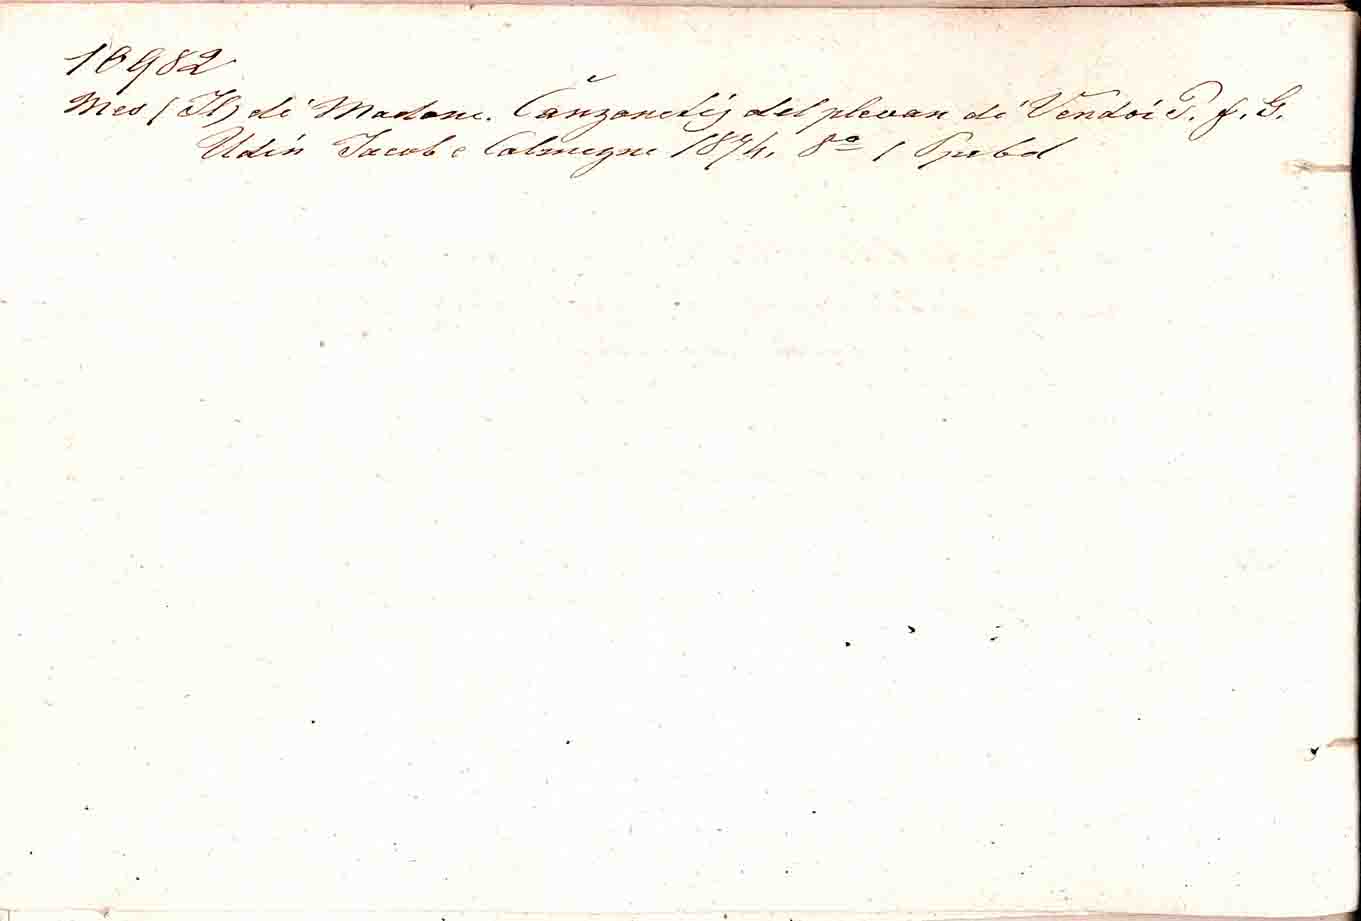 10982
Mes (Il) di Madone. Čanzonetis del plevan di Vendoi P. J. G.
Udin Jacob e Colmegne 1874. 8º 1 Ppbd